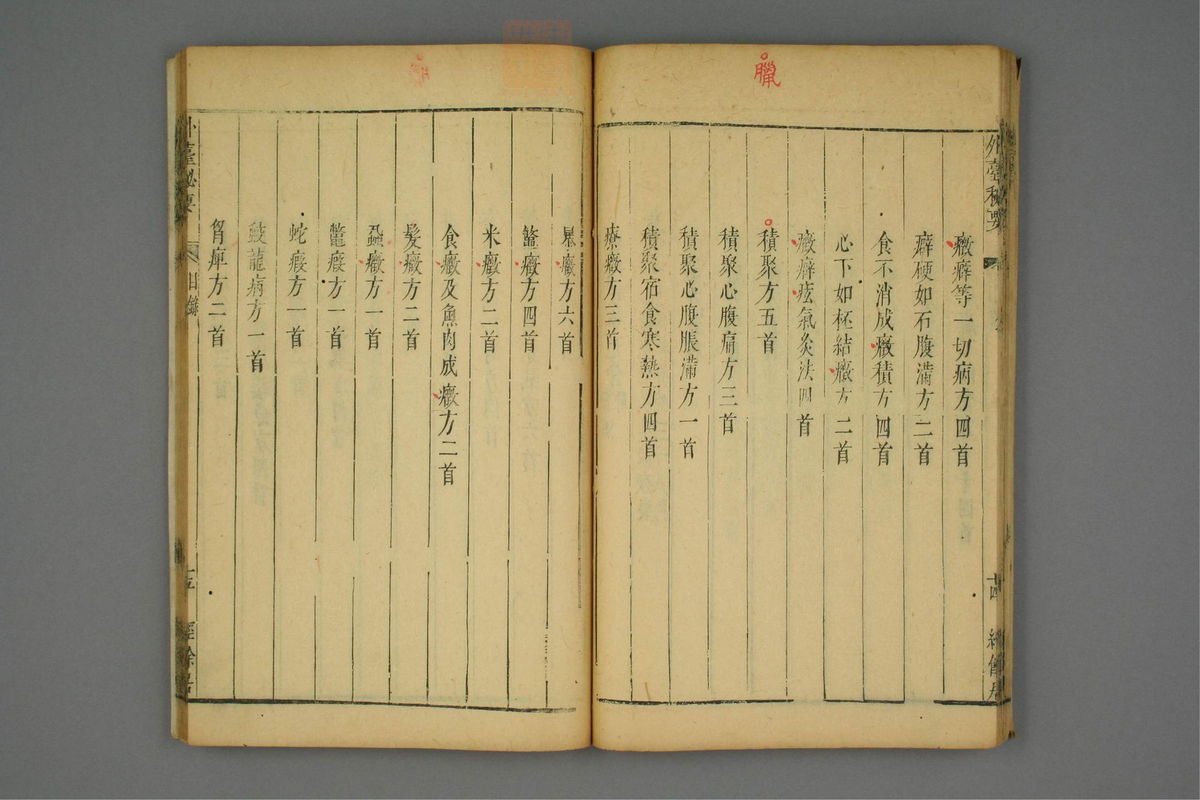 臘
外臺秘要
癥癖等一切病方四首
癖硬如石腹滿方二首
食不消成癥積方四首
心下如杯結癥方二首
癥癖痃氣灸法四首
積聚方五首
積聚心腹痛方三首
積聚心腹脹滿方一首
積聚宿食寒熱方四首
療癥方三首
暴癥方六首
鼈癥方四首
米癥方二首
食癥及魚肉成癥方二首
髮癥方二首
蝨癥方一首
鼈瘕方一首
蛇瘕方一首
蛟龍病方一首
胷痺方二首
外臺秘要 目錄 經餘居